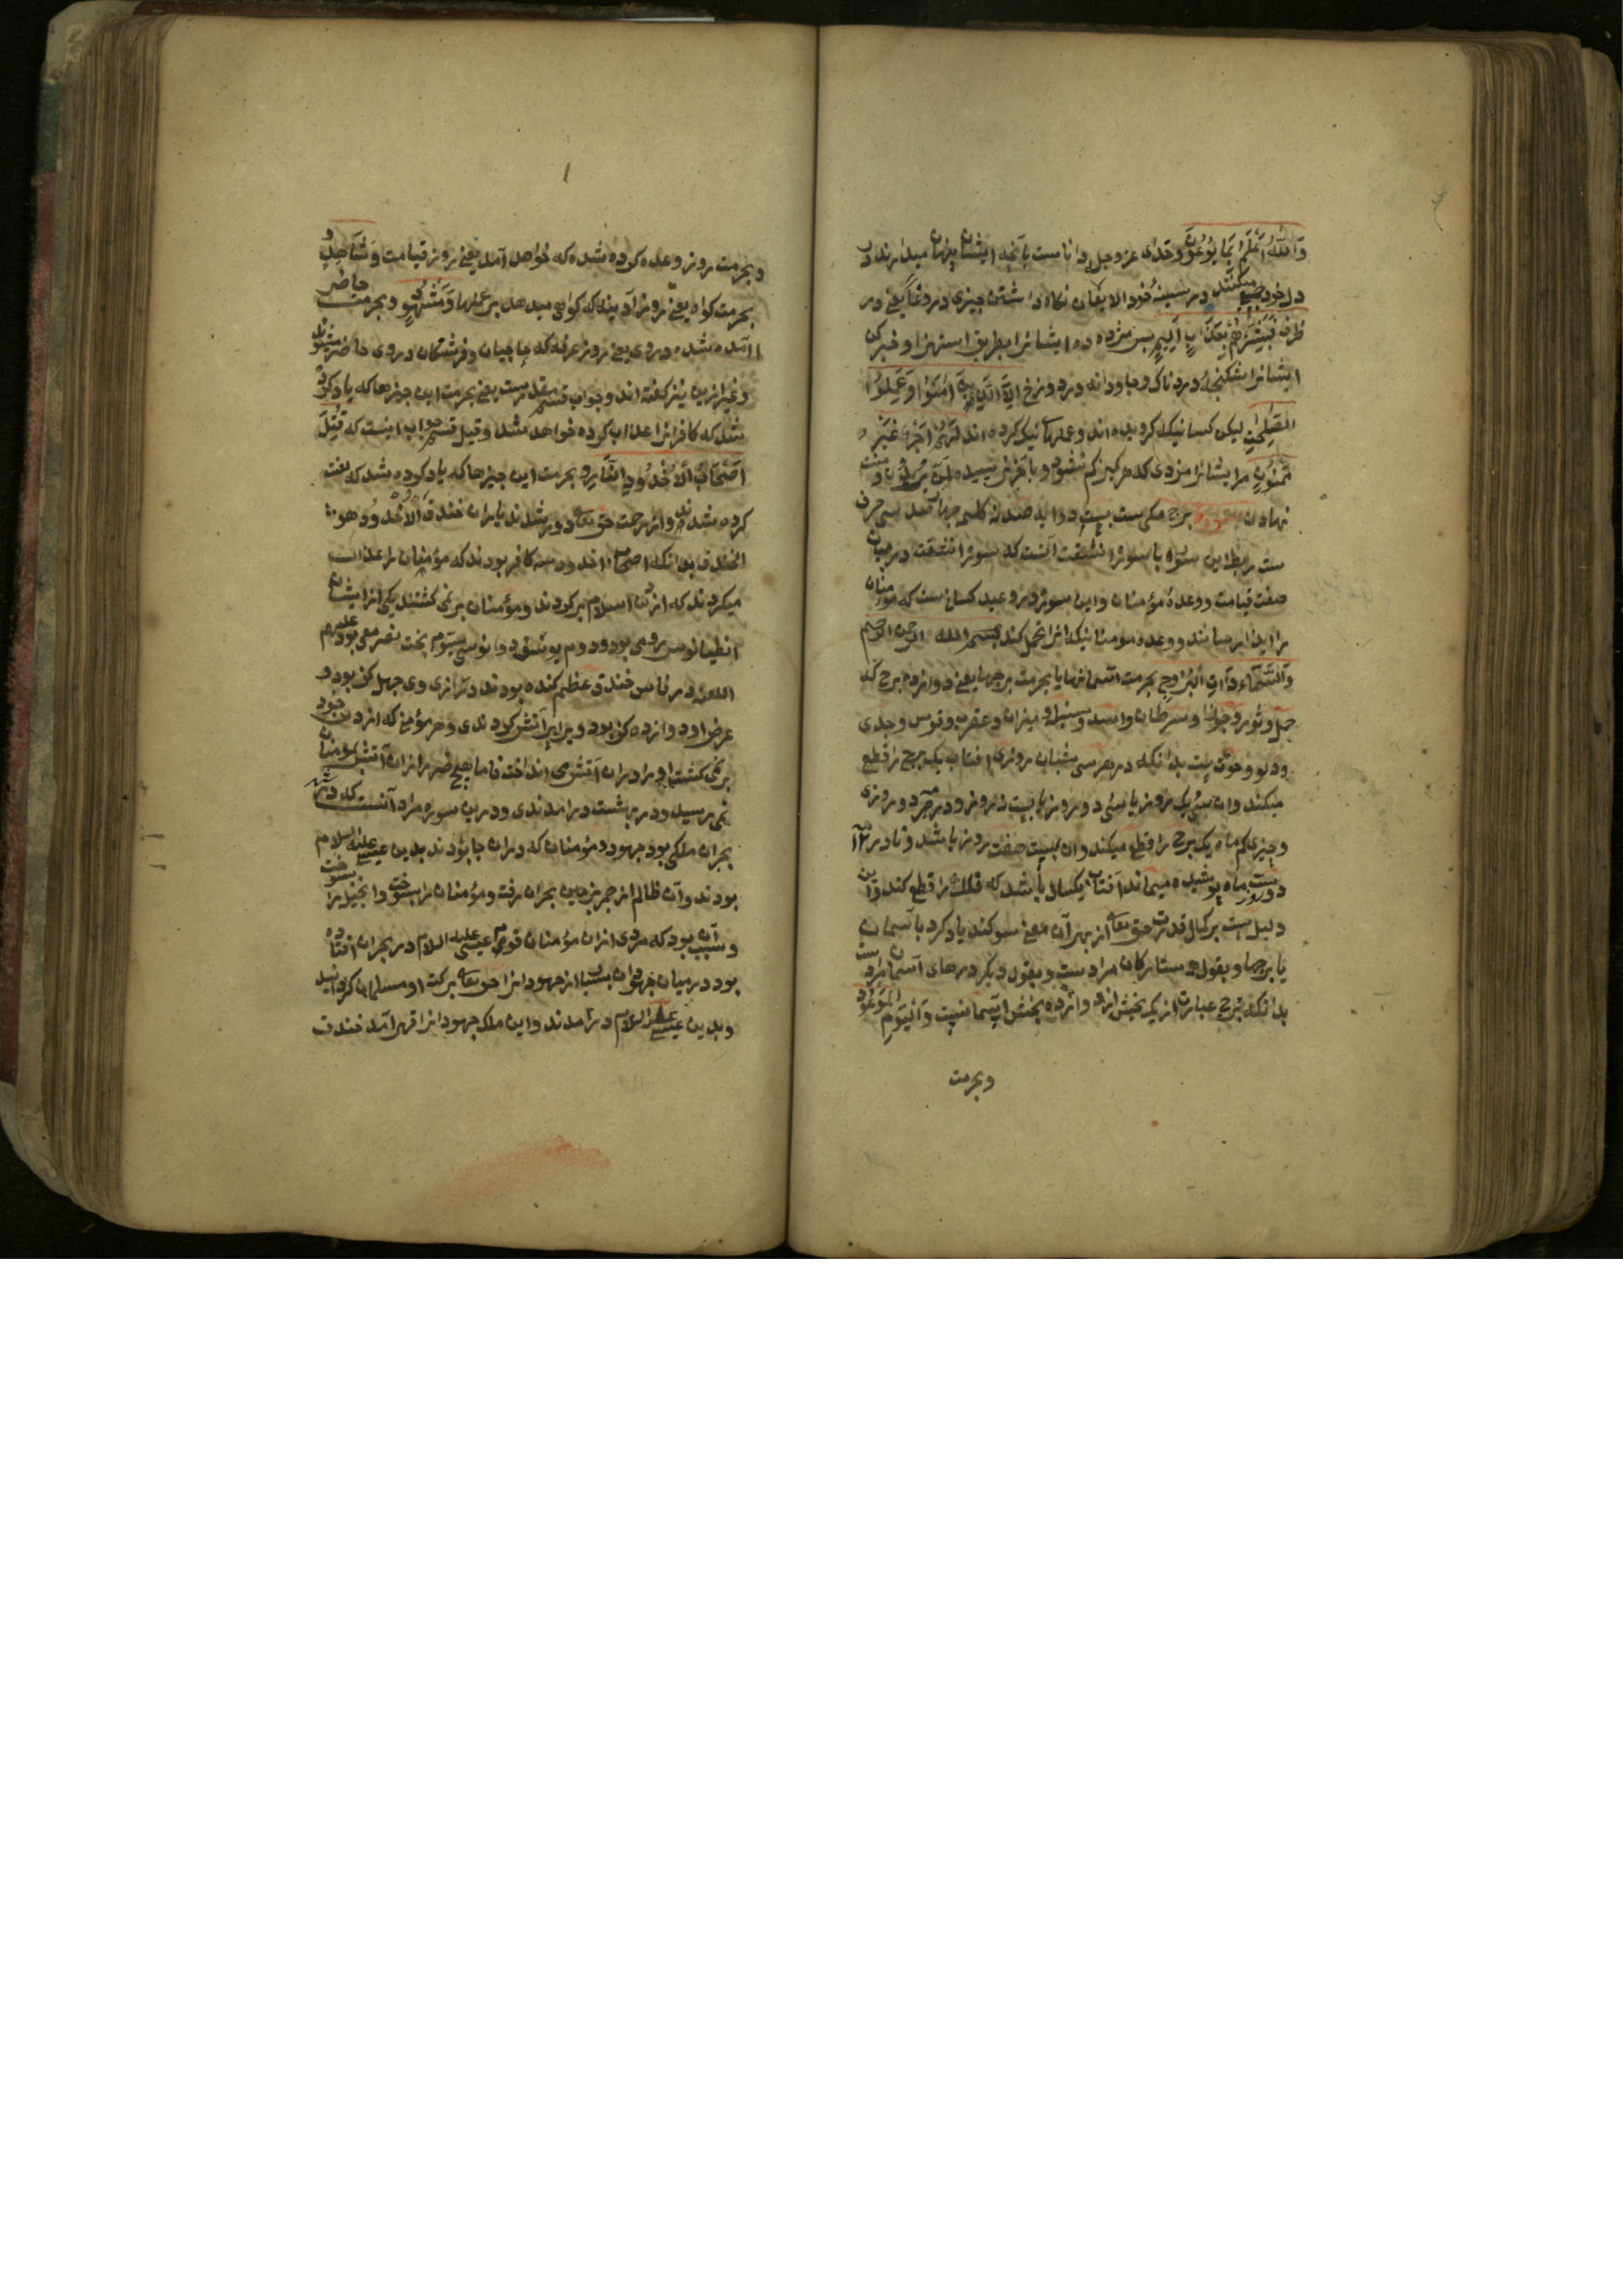 وَاللّٰهُ اَعْلَمُ بِمَا يُوْعُوْنَ وخدای عز و جل دانا ست بآنچه ایشان پنهان میدارند در
دل خود جمع میکنند در سینهٔ خود الایعان نکاه داشتن چیزی در وعا یعنی در
ظرف فَبَشِّرْهُمْ بِعَذَابٍ اَلِيْمٍ پس مژده ده ایشانرا بطریق استهزا و خبر کن
ایشانرا بشکنجهٔ دردناک و جاودانه در دوزخ اِلَّا الَّذِيْنَ اٰمَنُوْا وَعَمِلُوْا
الصّٰلِحٰتِ لیکن کسانیکه کرویده اند و عملهای نیک کرده اند لَهُمْ اَجْرٌ غَيْرُ
مَمْنُوْنٍ مر ایشانرا مزدی که هرکز کم نشود و بآخر نرسیده
نهادن برج مکی ست بیست دو ایه صد نه کلمه چهار صد سی حرف
ست ربط این سوره با سورهٔ انشقت آنست که سورهٔ انشقت در بیان
صفت قیامت و وعدهٔ مؤمنان و این سوره در وعید کسانیست که مؤمنان
را ایذا رسانند و وعده مومنانیکه انرا تحمل کند بسم الله الرحمن الرحیم
وَالسَّمَآءِ ذَاتِ الْبُرُوْجِ بحرمت آسمانها یا بحرمت برجها یعنی دوازده برج که
حمل و ثور و جوزا و سرطان و اسد و سنبله و میزان و عقرب و قوس و جدی
و دلو و حوت ست بدانکه در هر سی شبان روزی افتاب یک برج را قطع
میکند وان سی یک روز یا سی و دو روز یا بیست نه روز و در هر دو روزی
و چیزی کم ماه یک برج را قطع میکند وان بیست هفت روز باشد و نادر
دو روز ست ماه پوشیده میماند آفتاب یکسال باشد که فلک را قطع کند و این
دلیل ست بر کمال قدرت حق تعالی از بهر آن معنی سوکند یاد کرد با آسمان
یا برجها و بقول ستارکان مراد ست و بقول دیکر درهای آسمان مراد ست
بدانکه برج عبارت از یک بخش از دوازده بخش آسمانست وَالْيَوْمِ الْمَوْعُوْدِ
وبحرمت
و بحرمت روز وعده کرده شده که خواهد آمد یعنی روز قیامت وَشَاهِدٍ
بحرمت کواه یعنی روز آدینه که کواهی میدهد بر عملها وَمَشْهُوْدٍ و بحرمت حاضر
آمده شده در وی یعنی روز عرفه که حاجیان و فرشتکان در وی حاضر میشوند
و غیر ازین نیز کفته اند و جواب قسم مقدر ست یعنی بحرمت این چیزها که یاد کرده
شد که کافرانرا عذاب کرده خواهد شد و قیل قسم جواب اینست که قُتِلَ
اَصْحَابُ الْاُخْدُوْدِ النَّارِ و بحرمت این چیزها که یاد کرده شد که لعنت
کرده شدند و از رحمت حق تعالی دور شدند یاران خندق اَلْاُخْدُوْدُ هو
الخندق بدانکه اصحاب اخدود سه کافر بودند که مؤمنان را عذاب
میکردند که از دین اسلام برکردند و مؤمنان بر نمی کشتند یکی از ایشان
انطیانوس رومی بود و دوم یوسف ذو نواس سیوم بخت نصر می بود علیهم
اللعنه در فارس خندق عظیم کنده بودند درازی وی چهل کز بود و
عرض او دوازده کز بود و برابر آتش کردندی و هر مؤمنی که از دین خود
بر نمی کشت او را در ان آتش می انداخت فاما هیچ ضرر از ان آتش بمؤمنان
نمی رسید و در بهشت در امدندی و درین سوره مراد آنست که در شهر
بحران ملکی بود جهود و مؤمنان که در ان جا بودند بدین عیسی علیه السلام
بودند و آن ظالم از حمیر بزمین بحران رفت و مؤمنان را بسوخت و انجیل را بسوخت
و سبب آن بود که مردی از ان مؤمنان قوم عیسی علیه السلام در بحران افتاده
بود در میان جهودان بسیار از جهودانرا حق تعالی ببرکت او مسلمان کردانید
و بدین عیسی علیه السلام در آمدند و این ملک جهودانرا قهر آمد خندق